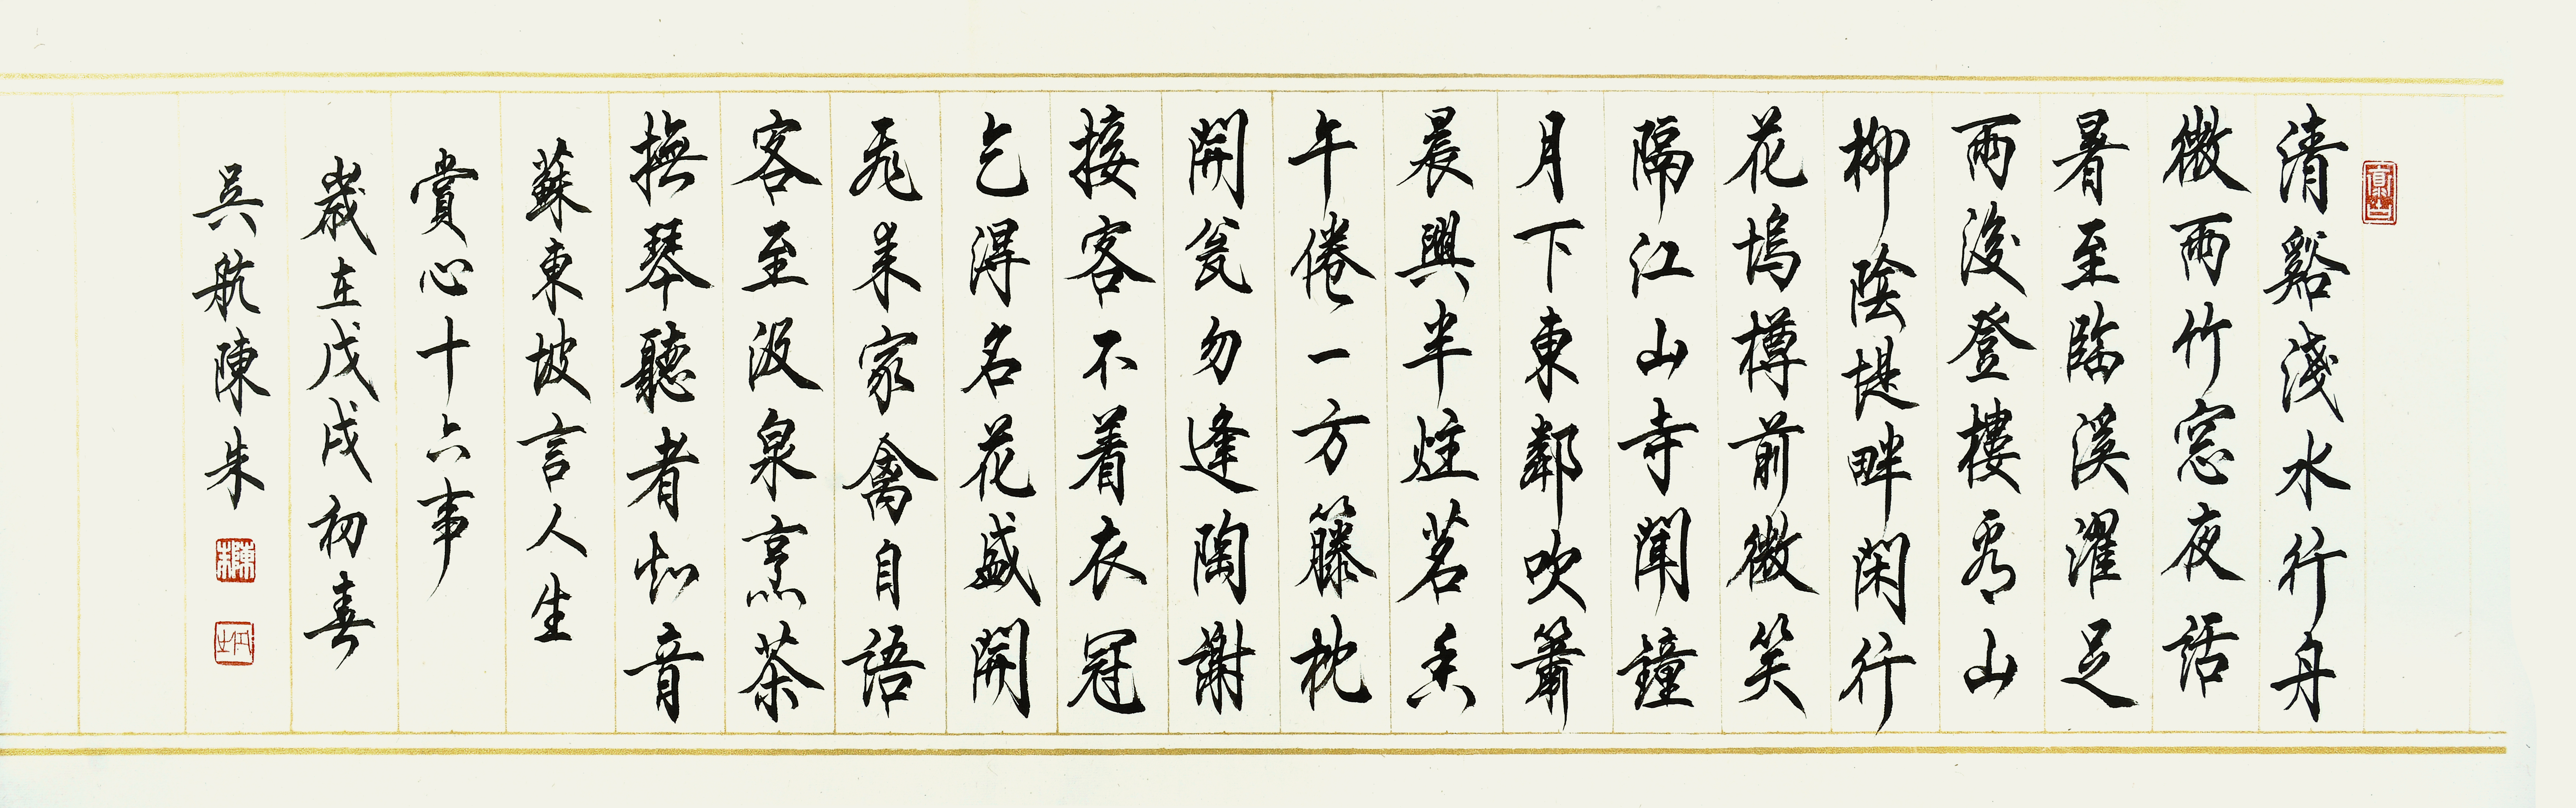 清谿淺水行舟
微雨竹窓夜話
暑至臨溪濯足
雨後登樓看山
柳陰堤畔閑行
花塢樽前微笑
隔江山寺聞鐘
月下東鄰吹簫
晨興半炷茗香
午倦一方籐枕
開瓮勿逢陶謝
接客不着衣冠
乞得名花盛開
飛来家禽自語
客至汲泉烹茶
撫琴聽者知音
蘇東坡言人生
賞心十六事
歲在戊戌初春
吳航陳朱